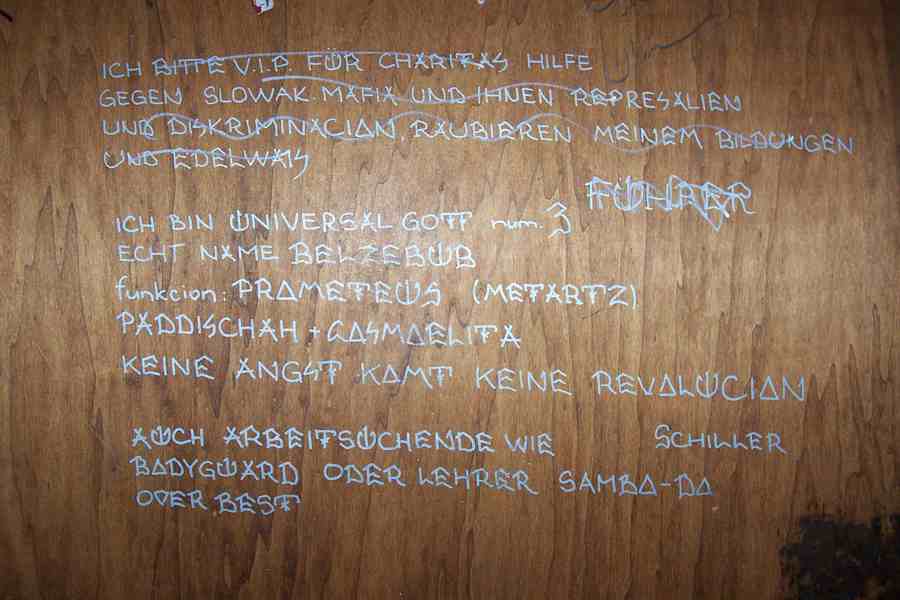 ICH BITTE V.I.P. FÜR CHARITAS HILFE
GEGEN SLOWAK. MAFIA UND IHNEN REPRESALIEN
UND DISKRIMINACIAN, RAUBIEREN MEINEM BILDUNGEN
UND EDELWAIS
FÜHRER
ICH BIN UNIVERSAL GOTT num. 3
ECHT NAME BELZEBUB
funkcion: PRAMETEUS (METARTZ)
PADDISCHAH + GASMAELITA
KEINE ANGST KAMT KEINE REVALUCIAN
AUCH ARBEITSUCHENDE WIE SCHILLER
BADYGUARD ODER LEHRER SAMBA-DA
OVER BEST